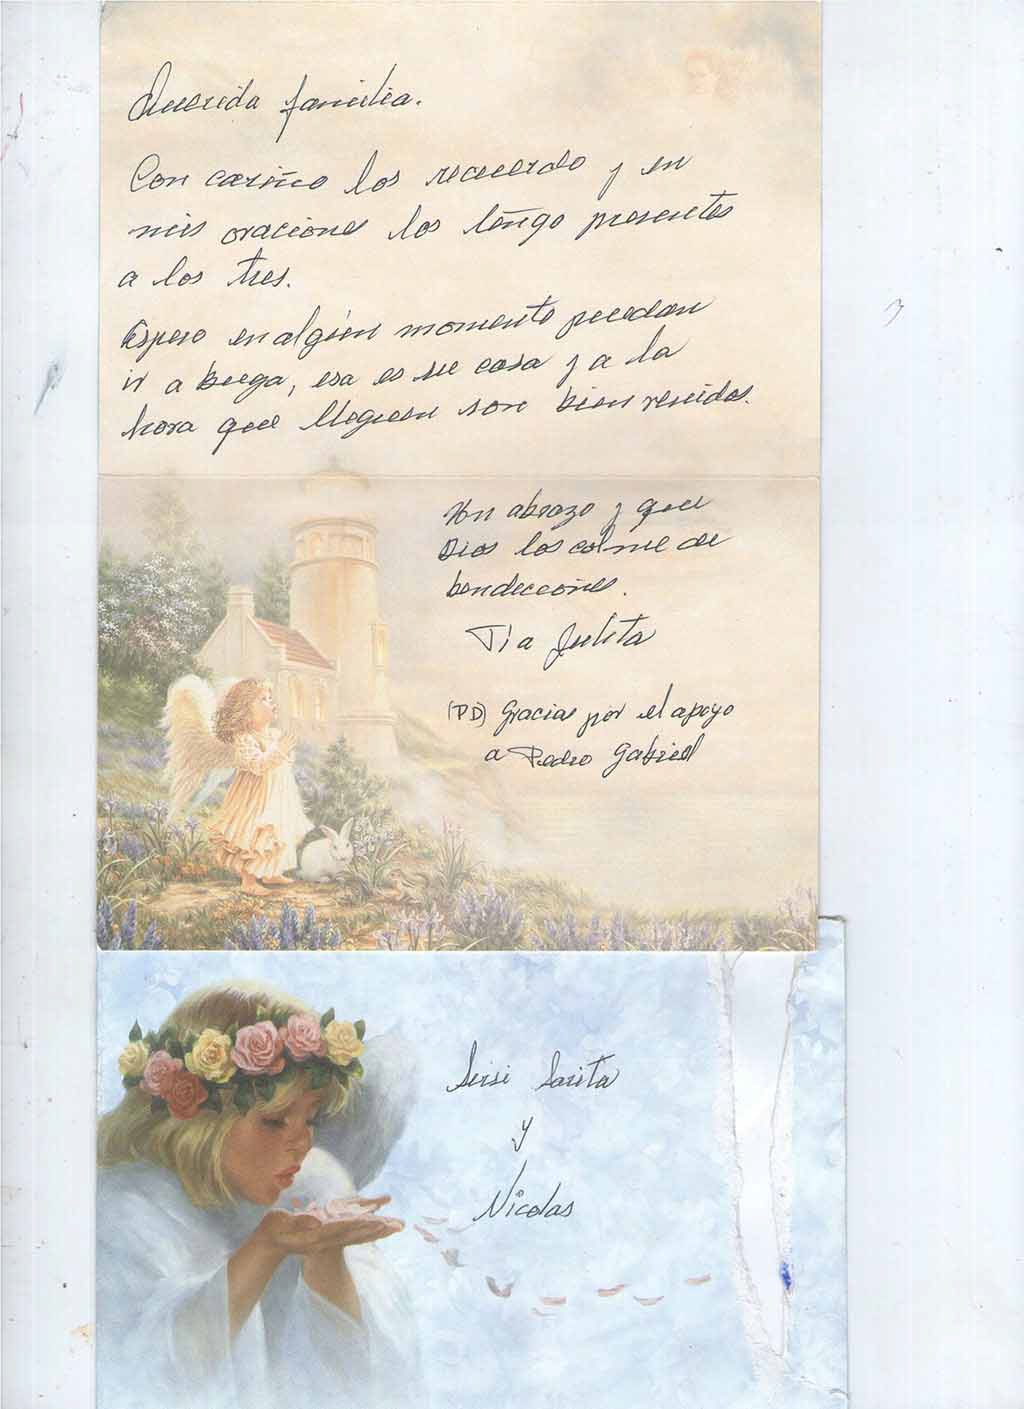 Querida familia.
Con cariño los recuerdo y en
mis oraciones los tengo presentes
a los tres.
Espero en algún momento puedan
ir a Buga, esa es su casa y a la
hora que lleguen son bien venidos.
Un abrazo y que
Dios los colme de
bendiciones.
Tía Julita
(PD) Gracias por el apoyo
a Pedro Gabriel
Sersi Sarita
y
Nicolas